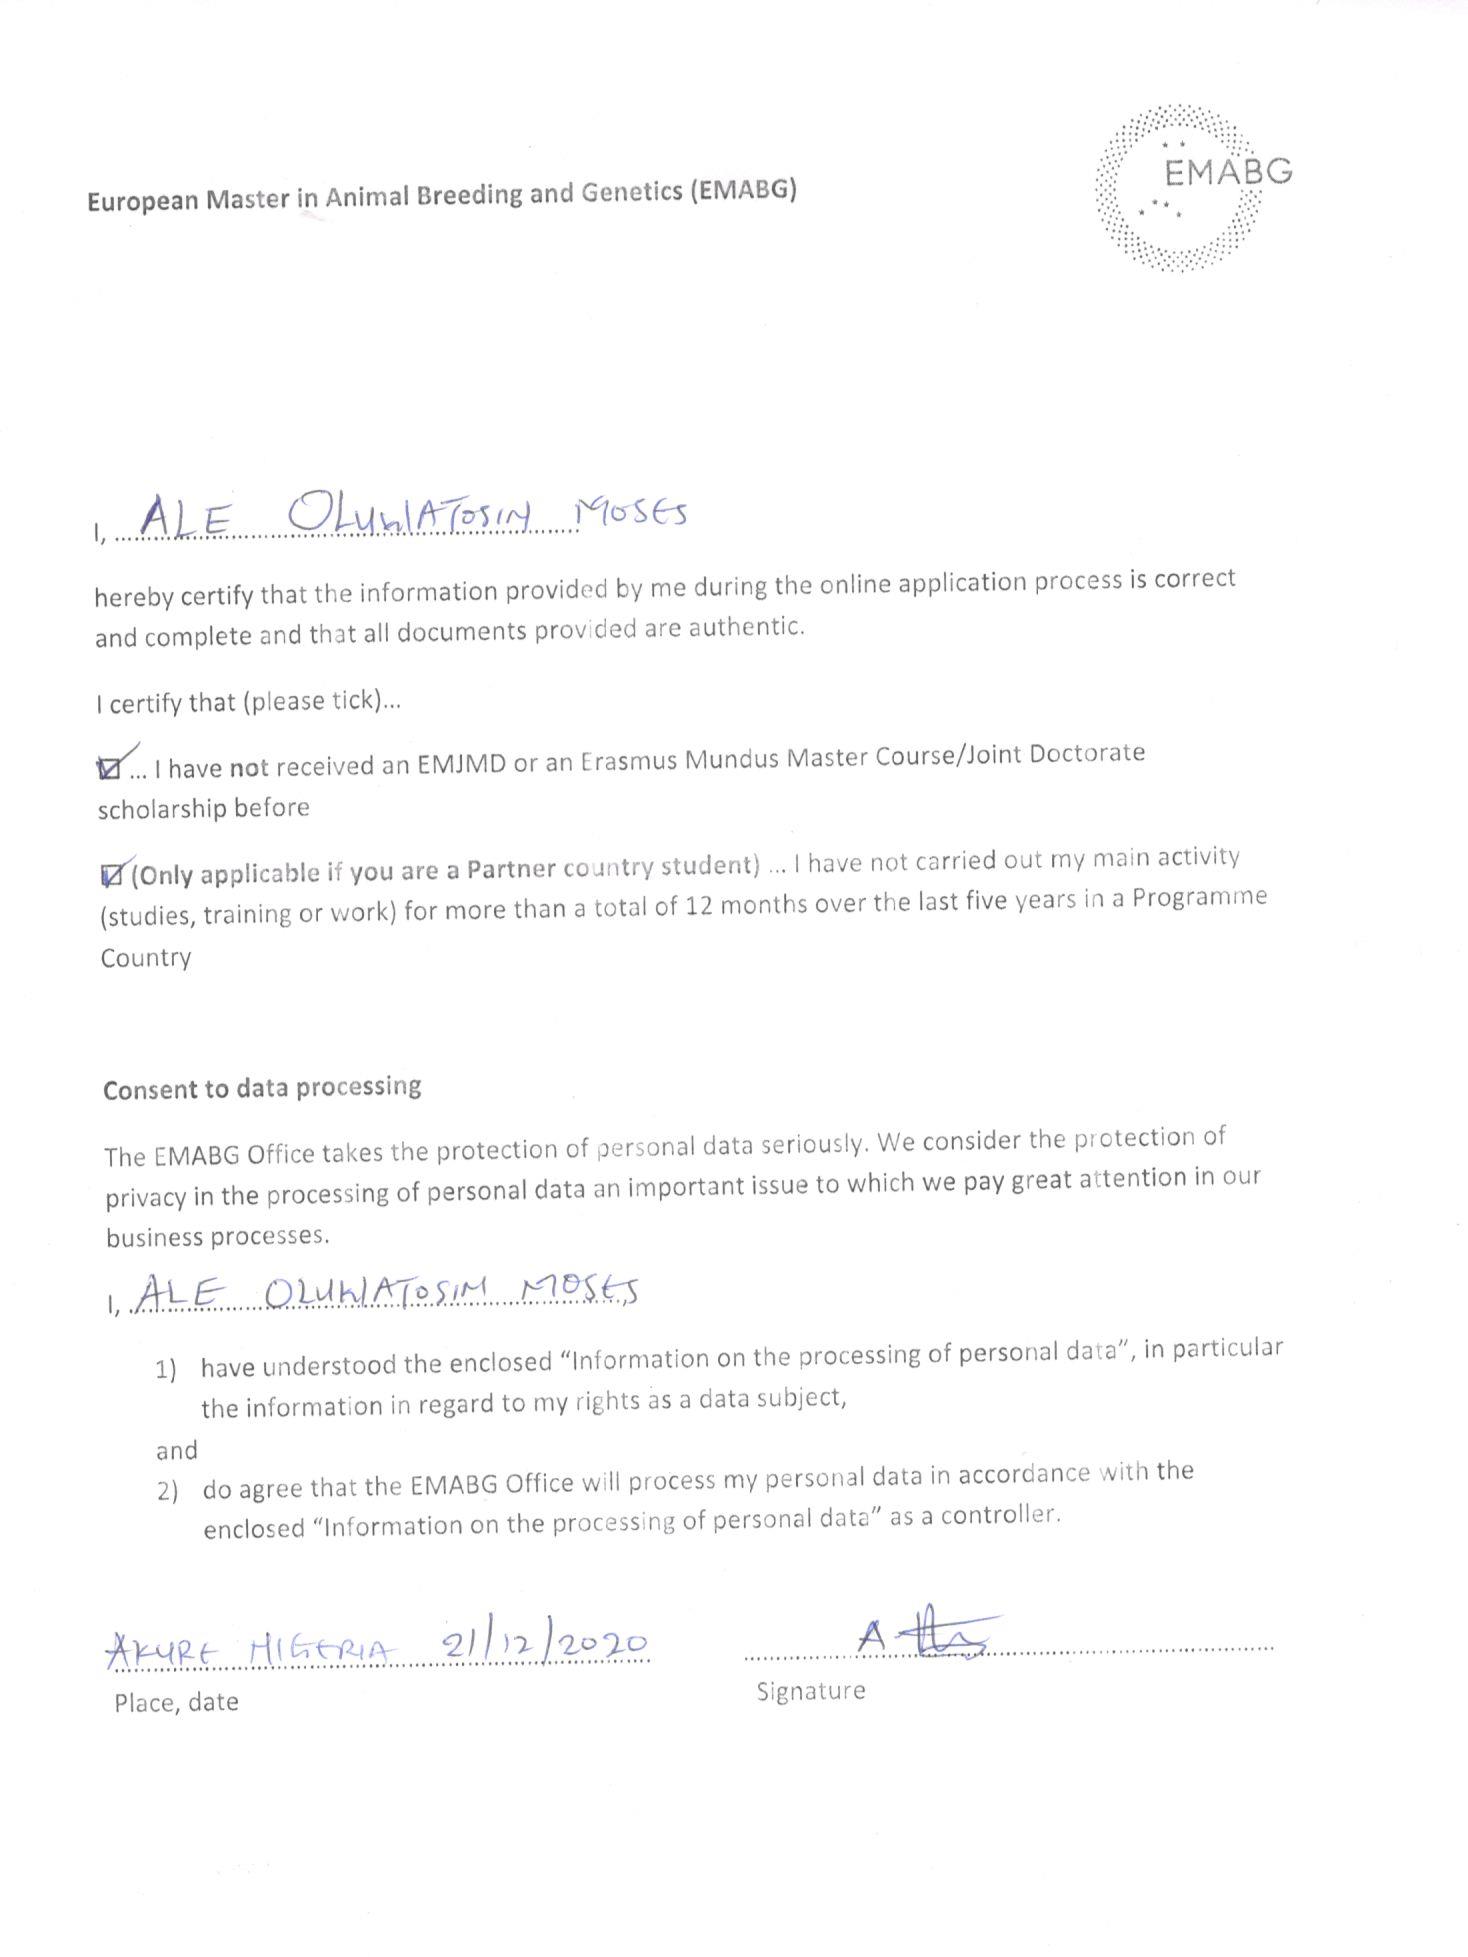 European Master in Animal Breeding and Genetics (EMABG)
EMABG
I, ALE OLUWATOSIN MOSES
hereby certify that the information provided by me during the online application process is correct
and complete and that all documents provided are authentic.
I certify that (please tick)...
☑... I have not received an EMJMD or an Erasmus Mundus Master Course/Joint Doctorate
scholarship before
☑ (Only applicable if you are a Partner country student) ... I have not carried out my main activity
(studies, training or work) for more than a total of 12 months over the last five years in a Programme
Country
Consent to data processing
The EMABG Office takes the protection of personal data seriously. We consider the protection of
privacy in the processing of personal data an important issue to which we pay great attention in our
business processes.
I, ALE OLUWATOSIN MOSES
1) have understood the enclosed “Information on the processing of personal data”, in particular
the information in regard to my rights as a data subject,
and
2) do agree that the EMABG Office will process my personal data in accordance with the
enclosed “Information on the processing of personal data” as a controller.
AKURE NIGERIA 21/12/2020
Place, date
Signature